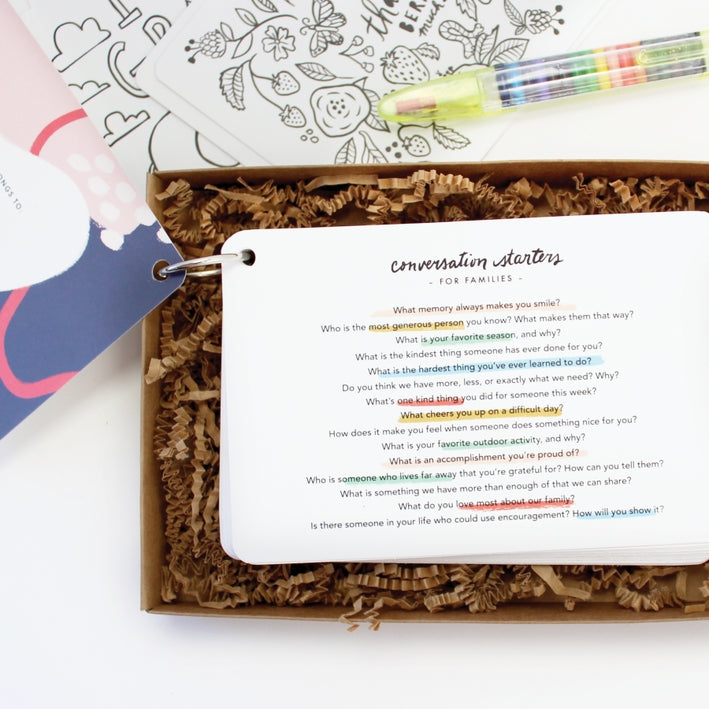 thank
BERRY
much
NGS TO
conversation starters
- FOR FAMILIES -
What memory always makes you smile?
Who is the most generous person you know? What makes them that way?
What is your favorite season, and why?
What is the kindest thing someone has ever done for you?
What is the hardest thing you've ever learned to do?
Do you think we have more, less, or exactly what we need? Why?
What's one kind thing you did for someone this week?
What cheers you up on a difficult day?
How does it make you feel when someone does something nice for you?
What is your favorite outdoor activity, and why?
What is an accomplishment you're proud of?
Who is someone who lives far away that you're grateful for? How can you tell them?
What is something we have more than enough of that we can share?
What do you love most about our family?
Is there someone in your life who could use encouragement? How will you show it?